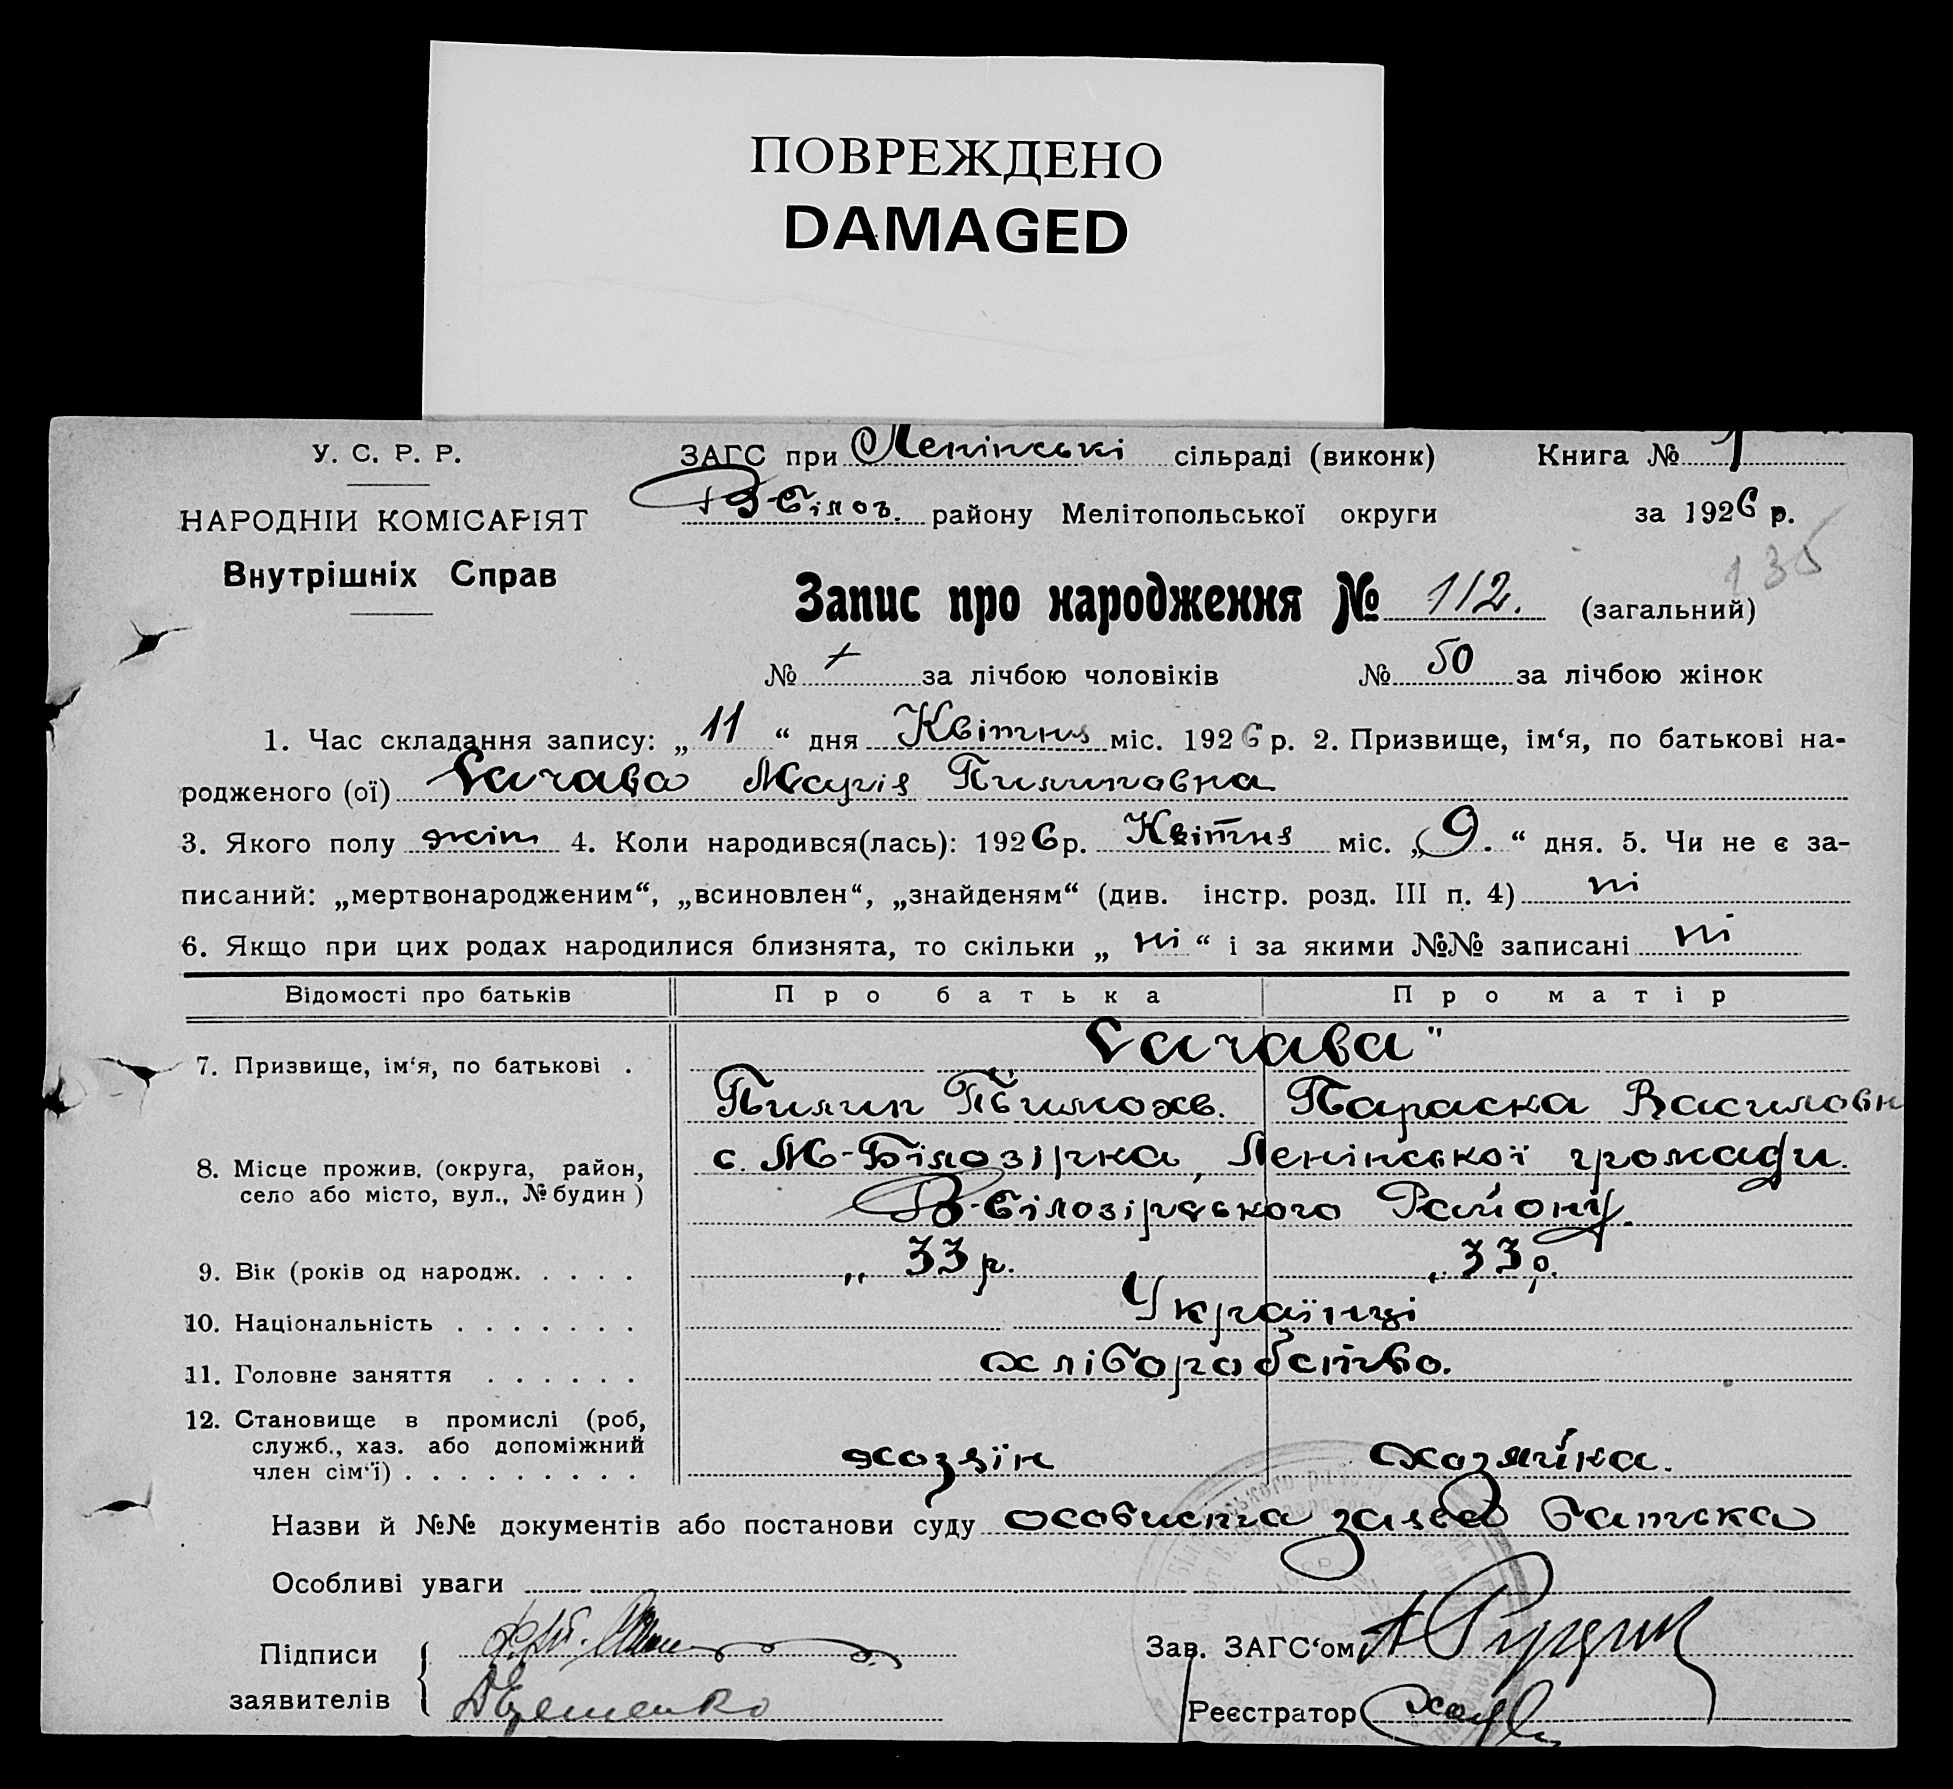 ПОВРЕЖДЕНО
DAMAGED
У. С. Р. Р.
ЗАГС при Ленінські сільраді (виконк) Книга № 1
НАРОДНІЙ КОМІСАРІЯТ
В-Білоз. району Мелітопольської округи за 1926 р.
Внутрішніх Справ
135
Запис про народження № 112. (загальний)
№ + за лічбою чоловіків № 50 за лічбою жінок
1. Час складання запису: „11“ дня Квітня міс. 1926 р. 2. Призвище, ім‘я, по батькові на-
родженого (ої) Сачава Марія Пилиповна
3. Якого полу жін 4. Коли народився(лась): 1926 р. Квітня міс. „9.“ дня. 5. Чи не є за-
писаний: „мертвонародженим“, „всиновлен“, „знайденям“ (див. інстр. розд. III п. 4) ні
6. Якщо при цих родах народилися близнята, то скільки „ні“ і за якими №№ записані ні
Відомості про батьків Про батька Про матір
7. Призвище, ім‘я, по батькові . Сачава"
Пилип Тимохв. Параска Василовн
8. Місце прожив. (округа, район, с. М-Білозірка, Ленінської громади.
село або місто, вул., № будин) В-Білозірського Району.
9. Вік (років од народж. . . . . „ 33 р. „ 33 р.
10. Національність . . . . . . . Українці
11. Головне заняття . . . . . . хліборобство.
12. Становище в промислі (роб,
служб., хаз. або допоміжний хозяїн хозяйка.
член сім‘ї) . . . . . . . . .
Назви й №№ документів або постанови суду особиста заява батька
Особливі уваги
Підписи Зав. ЗАГС‘ом
заявителів Реєстратор